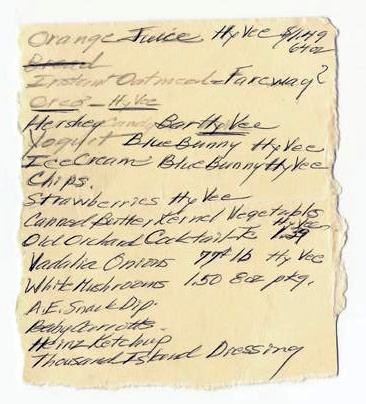 Orange Juice HyVee $1.49
64oz
Bread
Instant Oatmeal - Fareway?
Oreo - HyVee
Hershey Candy Bar HyVee
Yogurt Blue Bunny HyVee
Ice Cream Blue Bunny HyVee
Chips.
Strawberries HyVee
Canned Butter Kernel Vegetables
HyVee
Old Orchard Cocktail 1.39
Vadalia Onions 77¢ lb Hy Vee
White Mushrooms 1.50 8oz pkg.
A.E. Snack Dip.
Baby Carrotts.
Heinz Ketchup
Thousand Island Dressing